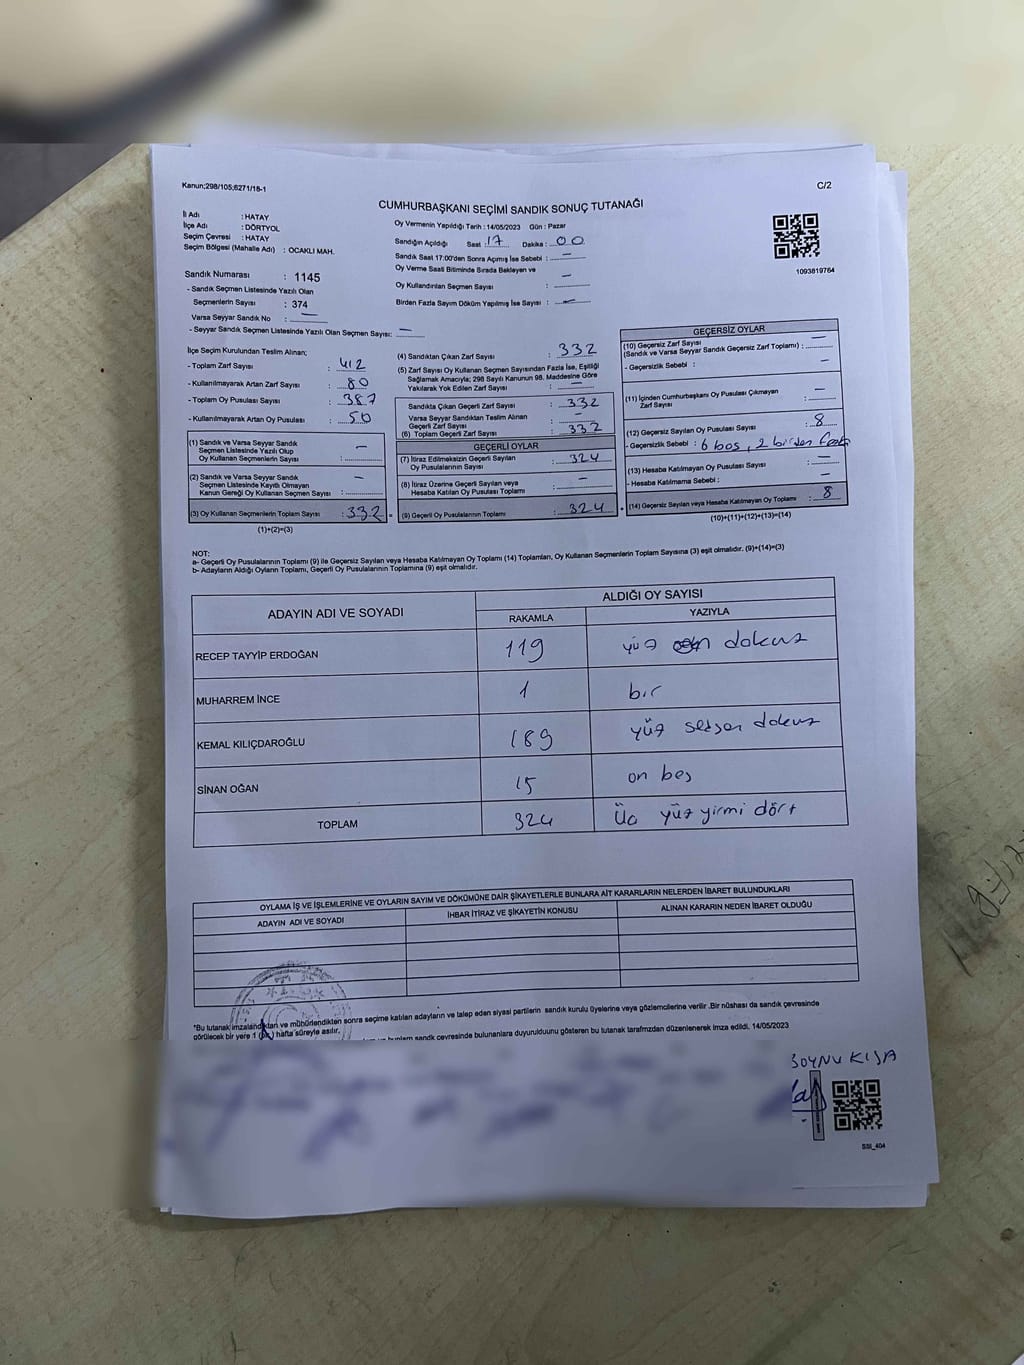 Kanun;298/105;6271/18-1
C/2
CUMHURBAŞKANI SEÇİMİ SANDIK SONUÇ TUTANAĞI
İl Adı : HATAY
İlçe Adı : DÖRTYOL
Seçim Çevresi : HATAY
Seçim Bölgesi (Mahalle Adı) : OCAKLI MAH.
Sandık Numarası : 1145
- Sandık Seçmen Listesinde Yazılı Olan
Seçmenlerin Sayısı : 374
Varsa Seyyar Sandık No : —
- Seyyar Sandık Seçmen Listesinde Yazılı Olan Seçmen Sayısı: —
Oy Vermenin Yapıldığı Tarih : 14/05/2023 Gün : Pazar
Sandığın Açıldığı Saat : 17 Dakika : 00
Sandık Saat 17:00'den Sonra Açımış İse Sebebi : —
Oy Verme Saati Bitiminde Sırada Bekleyen ve
Oy Kullandırılan Seçmen Sayısı : —
Birden Fazla Sayım Döküm Yapılmış İse Sayısı : —
1093819764
İlçe Seçim Kurulundan Teslim Alınan;
- Toplam Zarf Sayısı : 412
- Kullanılmayarak Artan Zarf Sayısı : 80
- Toplam Oy Pusulası Sayısı : 387
- Kullanılmayarak Artan Oy Pusulası : 50
(1) Sandık ve Varsa Seyyar Sandık
Seçmen Listesinde Yazılı Olup
Oy Kullanan Seçmenlerin Sayısı : —
(2) Sandık ve Varsa Seyyar Sandık
Seçmen Listesinde Kayıtlı Olmayan
Kanun Gereği Oy Kullanan Seçmen Sayısı : —
(3) Oy Kullanan Seçmenlerin Toplam Sayısı : 332
(1)+(2)=(3)
(4) Sandıktan Çıkan Zarf Sayısı : 332
(5) Zarf Sayısı Oy Kullanan Seçmen Sayısından Fazla İse, Eşitliği
Sağlamak Amacıyla; 298 Sayılı Kanunun 98. Maddesine Göre
Yakılarak Yok Edilen Zarf Sayısı : —
Sandıkta Çıkan Geçerli Zarf Sayısı : 332
Varsa Seyyar Sandıktan Teslim Alınan
Geçerli Zarf Sayısı : —
(6) Toplam Geçerli Zarf Sayısı : 332
GEÇERLİ OYLAR
(7) İtiraz Edilmeksizin Geçerli Sayılan
Oy Pusulasının Sayısı : 324
(8) İtiraz Üzerine Geçerli Sayılan veya
Hesaba Katılan Oy Pusulası Toplamı : —
(9) Geçerli Oy Pusulalarının Toplamı : 324
GEÇERSİZ OYLAR
(10) Geçersiz Zarf Sayısı
(Sandık ve Varsa Seyyar Sandık Geçersiz Zarf Toplamı) : —
- Geçersizlik Sebebi : —
(11) İçinden Cumhurbaşkanı Oy Pusulası Çıkmayan
Zarf Sayısı : —
(12) Geçersiz Sayılan Oy Pusulası Sayısı : 8
- Geçersizlik Sebebi : 6 boş, 2 birden fazla
(13) Hesaba Katılmayan Oy Pusulası Sayısı : —
- Hesaba Katılmama Sebebi : —
(14) Geçersiz Sayılan veya Hesaba Katılmayan Oy Toplamı : 8
(10)+(11)+(12)+(13)=(14)
NOT:
a- Geçerli Oy Pusulalarının Toplamı (9) ile Geçersiz Sayılan veya Hesaba Katılmayan Oy Toplamı (14) Toplamları, Oy Kullanan Seçmenlerin Toplam Sayısına (3) eşit olmalıdır. (9)+(14)=(3)
b- Adayların Aldığı Oyların Toplamı, Geçerli Oy Pusulalarının Toplamına (9) eşit olmalıdır.
ADAYIN ADI VE SOYADI
ALDIĞI OY SAYISI
RAKAMLA YAZIYLA
RECEP TAYYİP ERDOĞAN 119 yüz on dokuz
MUHARREM İNCE 1 bir
KEMAL KILIÇDAROĞLU 189 yüz seksen dokuz
SİNAN OĞAN 15 on beş
TOPLAM 324 Üç yüz yirmi dört
OYLAMA İŞ VE İŞLEMLERİNE VE OYLARIN SAYIM VE DÖKÜMÜNE DAİR ŞİKAYETLERLE BUNLARA AİT KARARLARIN NELERDEN İBARET BULUNDUKLARI
ADAYIN ADI VE SOYADI İHBAR İTİRAZ VE ŞİKAYETİN KONUSU ALINAN KARARIN NEDEN İBARET OLDUĞU
*Bu tutanak imzalandıktan ve mühürlendikten sonra seçime katılan adayların ve talep eden siyasi partilerin sandık kurulu üyelerine veya gözlemcilerine verilir .Bir nüshası da sandık çevresinde
görülecek bir yere 1 (bir) hafta süreyle asılır.
sandık çevresinde bulunanlara duyurulduunu gösteren bu tutanak tarafımzdan düzenlenerek imza edildi. 14/05/2023
BOYNU KISA
SSI_404